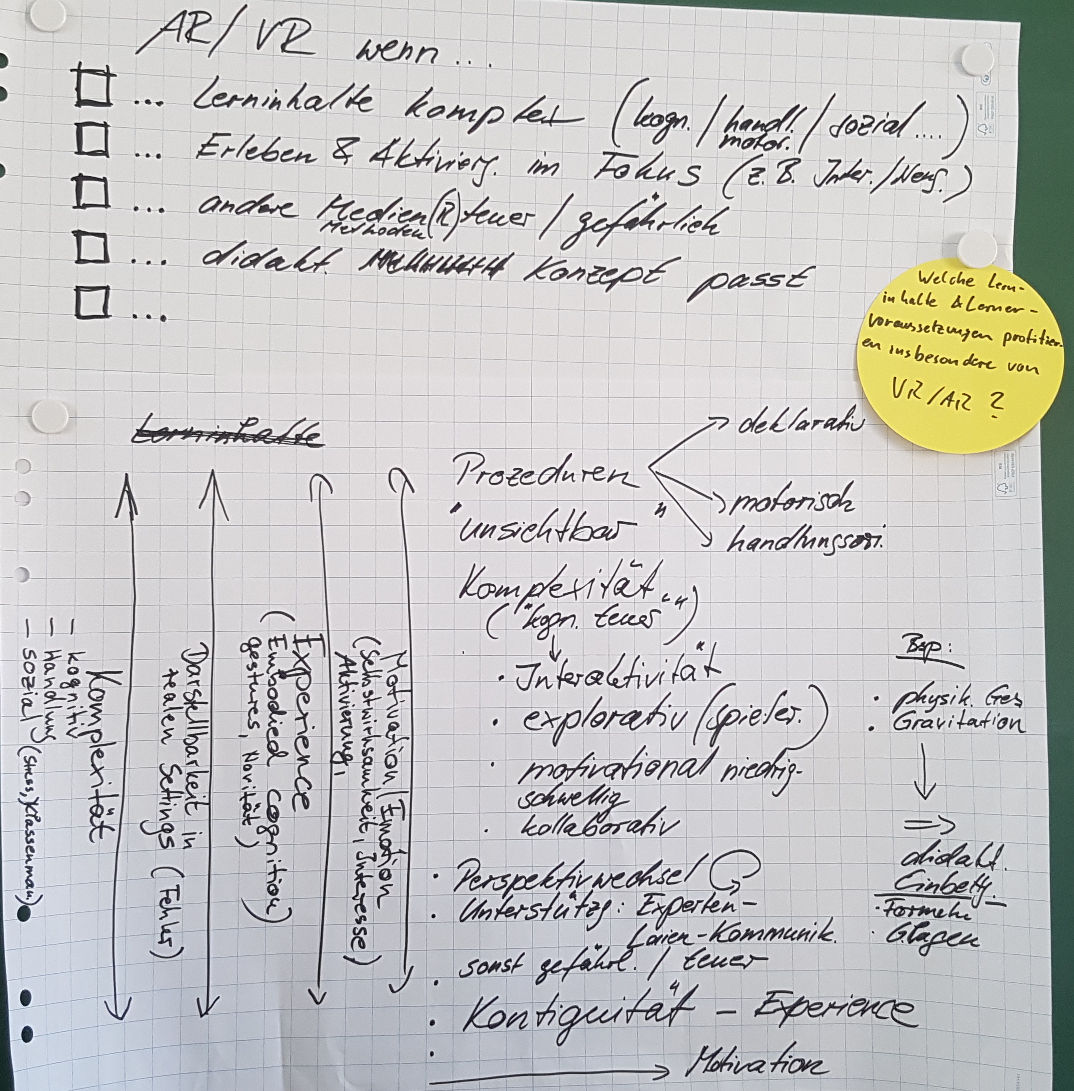 AR/VR wenn...
... Lerninhalte komplex (kogn./handl./sozial....)
motor.
... Erleben & Aktivierg. im Fokus (z.B. Inter./)
... andere Medien(R) teuer/gefährlich
Methoden
... didakt. Konzept passt
...
Welche Lern-
inhalte & Lerner-
voraussetzungen profitier-
en insbesondere von
VR/AR?
Lerninhalte
Prozeduren
deklarativ
motorisch
handlungsori.
"unsichtbar"
Komplexität
("kogn. teuer")
· Interaktivität
· explorativ/(spieler.)
· motivational niedrig-
schwellig
· kollaborativ
· Perspektivwechsel
· Unterstützg: Experten-
Laien-Kommunik.
· sonst gefährl./teuer
· Kontiguität – Experience
·
Motivation
Bsp:
· physik. Ges
· Gravitation
⇒
didakt.
Einbettg.
· Formeln
Komplexität
– kognitiv
– Handlung
– sozial (Stress, Klassenman)
Darstellbarkeit in
realen Settings (Fehler)
Experience
(Embodied cognition
gestures, Novität)
Motivation/Emotion
(Selbstwirksamkeit, Interesse)
Aktivierung,